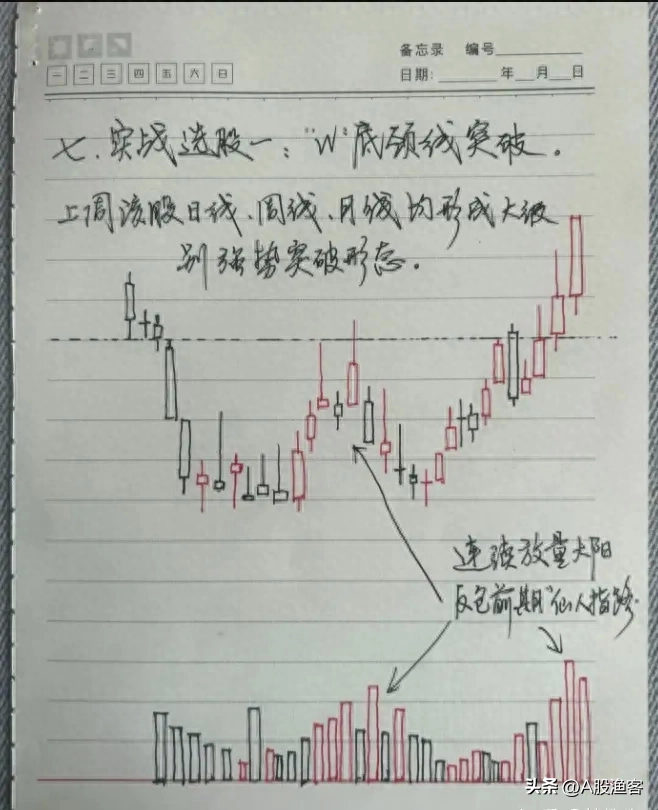 备忘录 编号
一 二 三 四 五 六 日
日期: 年 月 日
七、实战选股一：“W”底颈线突破。
上周该股日线、周线、月线均形成大级
别强势突破形态。
连续放量大阳
反包前期“仙人指路”
头条 @A股渔客